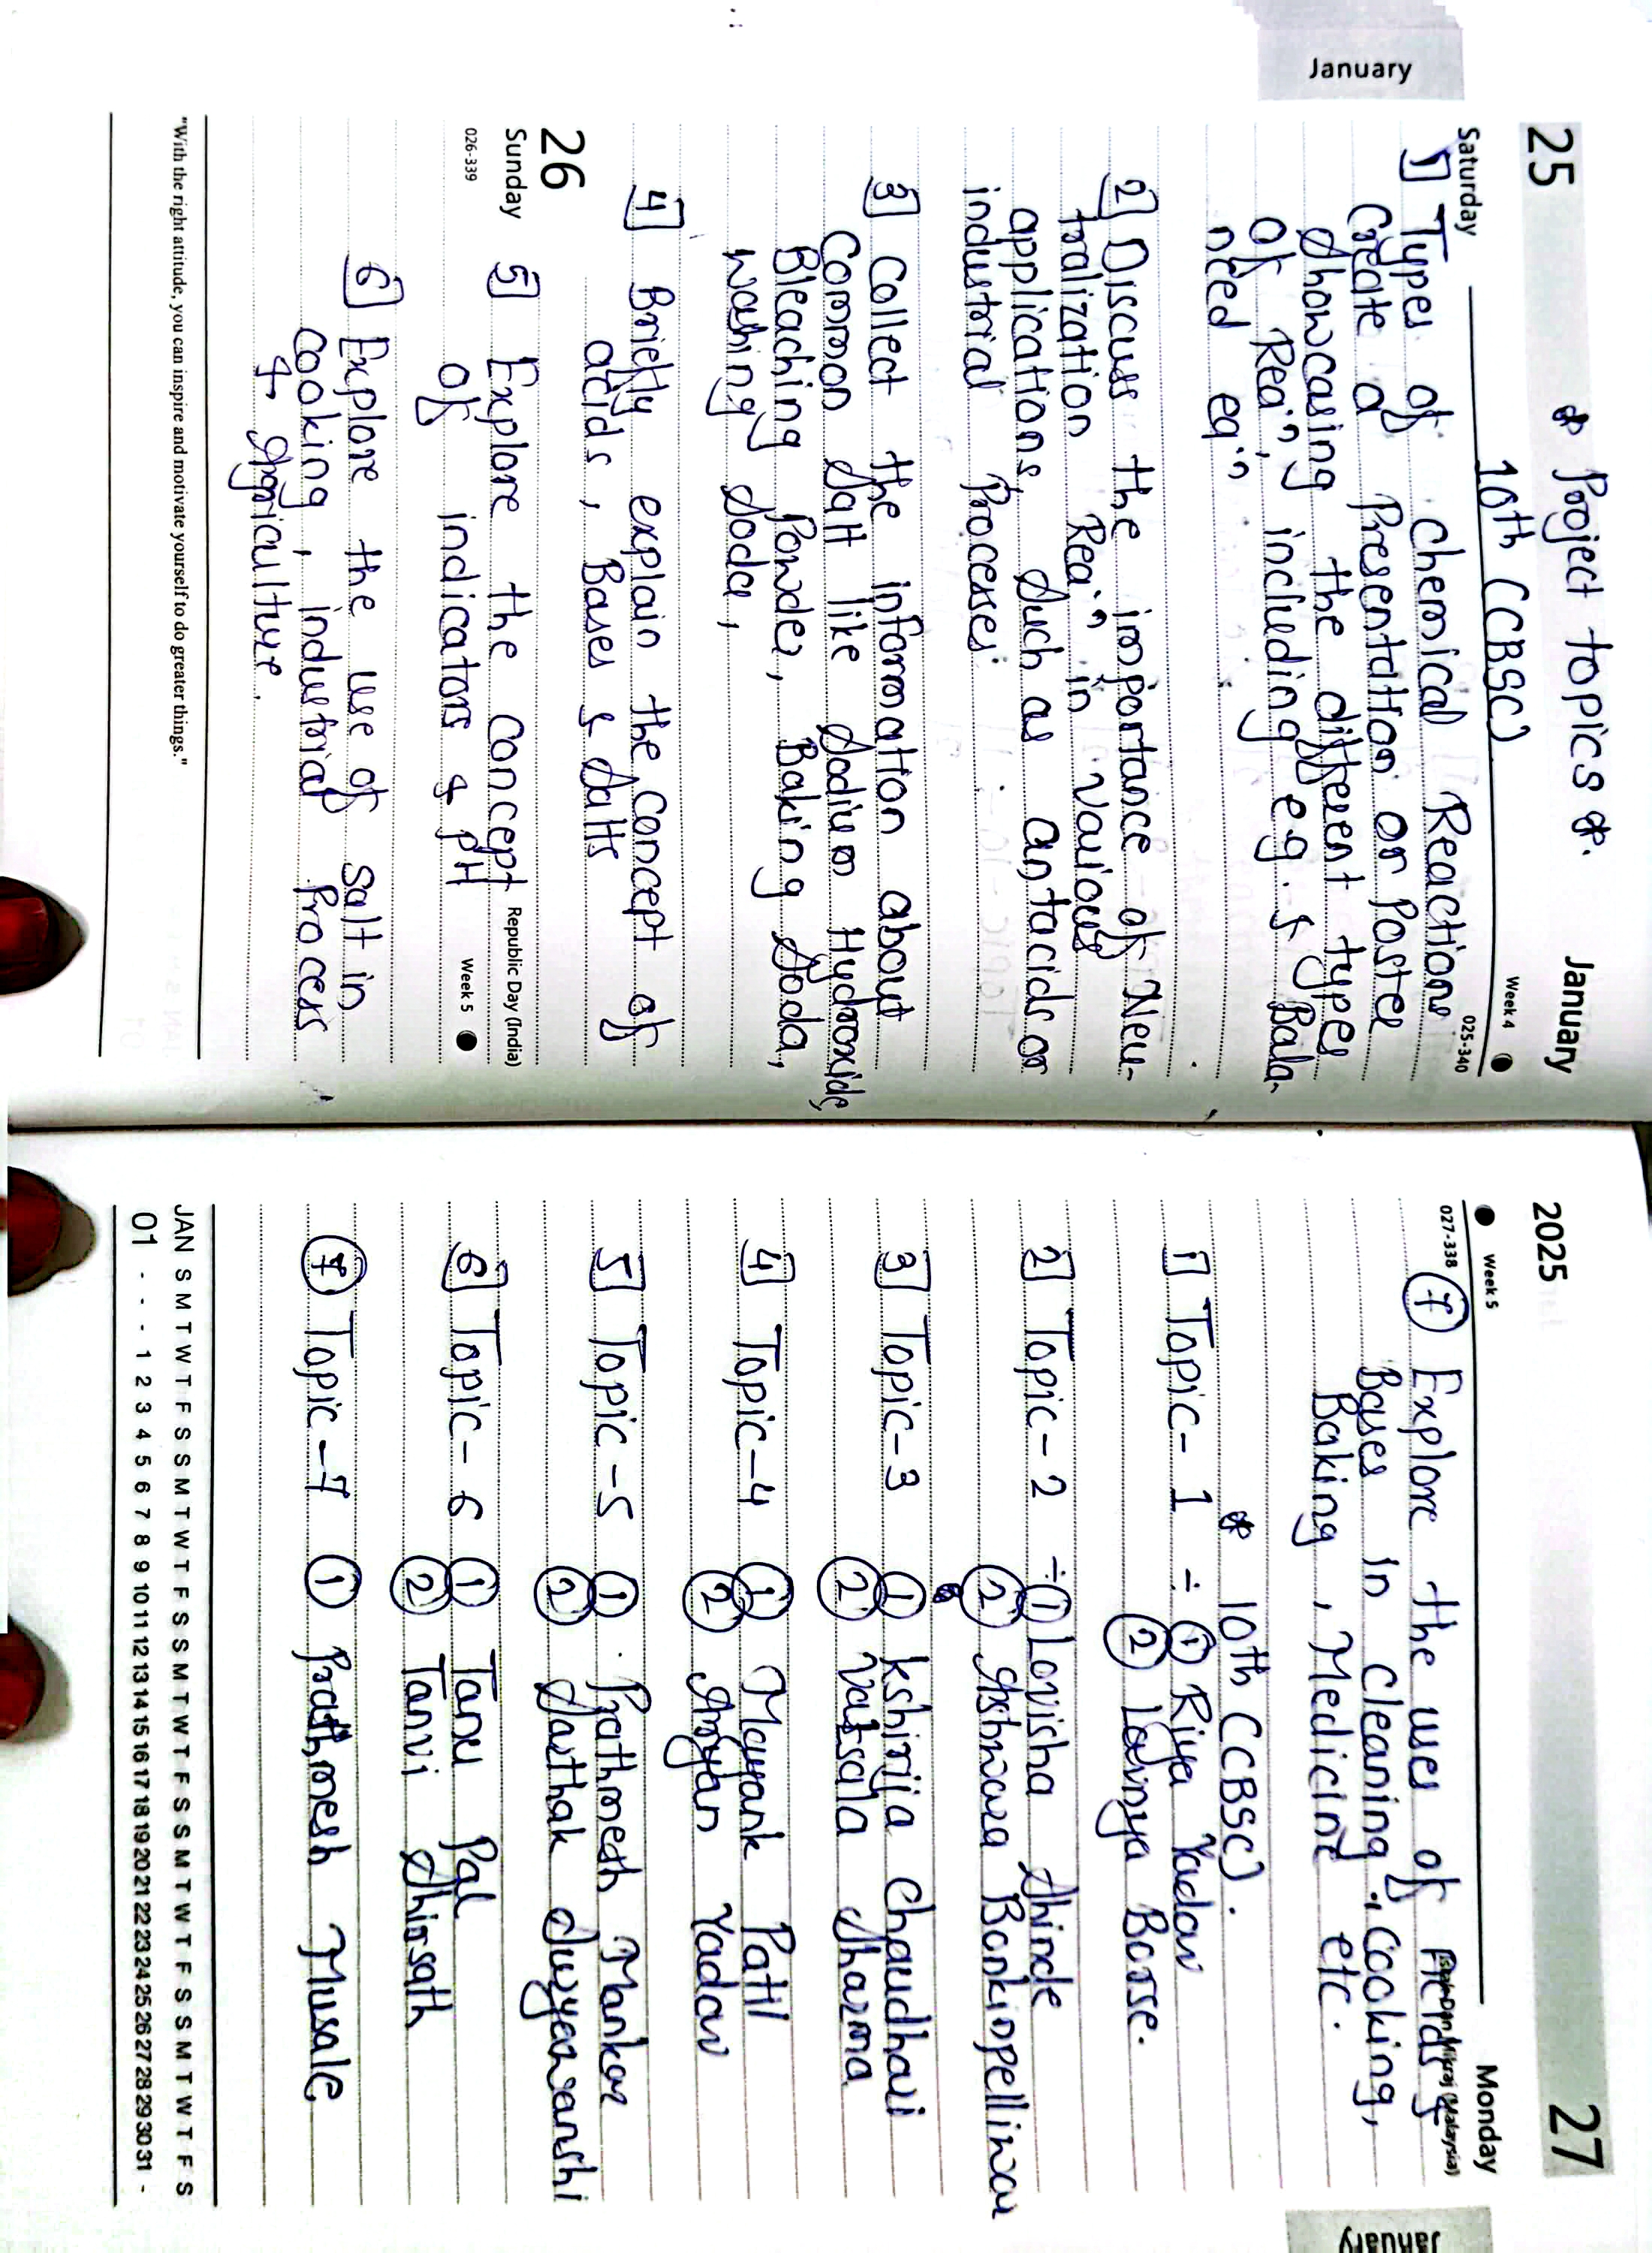 January
25
* Project topics *.
January
Saturday
10th (CBSC)
Week 4
025-340
1] Types of chemical Reactions
Create a Presentation or Poster
showcasing the different types
of Rea'n, including eg. & Bala-
nced eq'n
2] Discuss the importance of Neu-
tralization Rea'n in various
applications, such as antacids or
industrial Processes.
3] Collect the information about
Common salt like Sodium Hydroxide,
Bleaching Powder, Baking Soda,
washing Soda,
4] Briefly explain the concept of
acids, Bases & Salts
26
Sunday
026-339
Republic Day (India)
Week 5
5] Explore the concept
of indicators & pH
6] Explore the use of salt in
Cooking, industrial Process
& Agriculture.
"With the right attitude, you can inspire and motivate yourself to do greater things."
2025
27
Week 5
Monday
027-338
(Malaysia)
7 Explore the uses of Acids &
Bases in Cleaning, Cooking,
Baking, Medicine etc.
* 10th (CBSC).
1] Topic- 1 ÷ 1 Riya Yadav
2 Lavinya Borse.
2] Topic- 2 ÷ 1 Lovisha Shinde
2 Ashwara Bonkinpelliwar
3] Topic-3 1 Kshirija Chaudhari
2 Vatsala Sharma
4] Topic-4 1 Mayank Patil
2 Aryan Yadav
5] Topic-5 1 Prathmesh Mankar
2 Sarthak Suryawanshi
6] Topic- 6 1 Tanu Pal
2 Tanvi Shirsath
7 Topic-7 1 Prathmesh Musale
JAN S M T W T F S S M T W T F S S M T W T F S S M T W T F S S M T W T F S
01 - - - 1 2 3 4 5 6 7 8 9 10 11 12 13 14 15 16 17 18 19 20 21 22 23 24 25 26 27 28 29 30 31 -
January